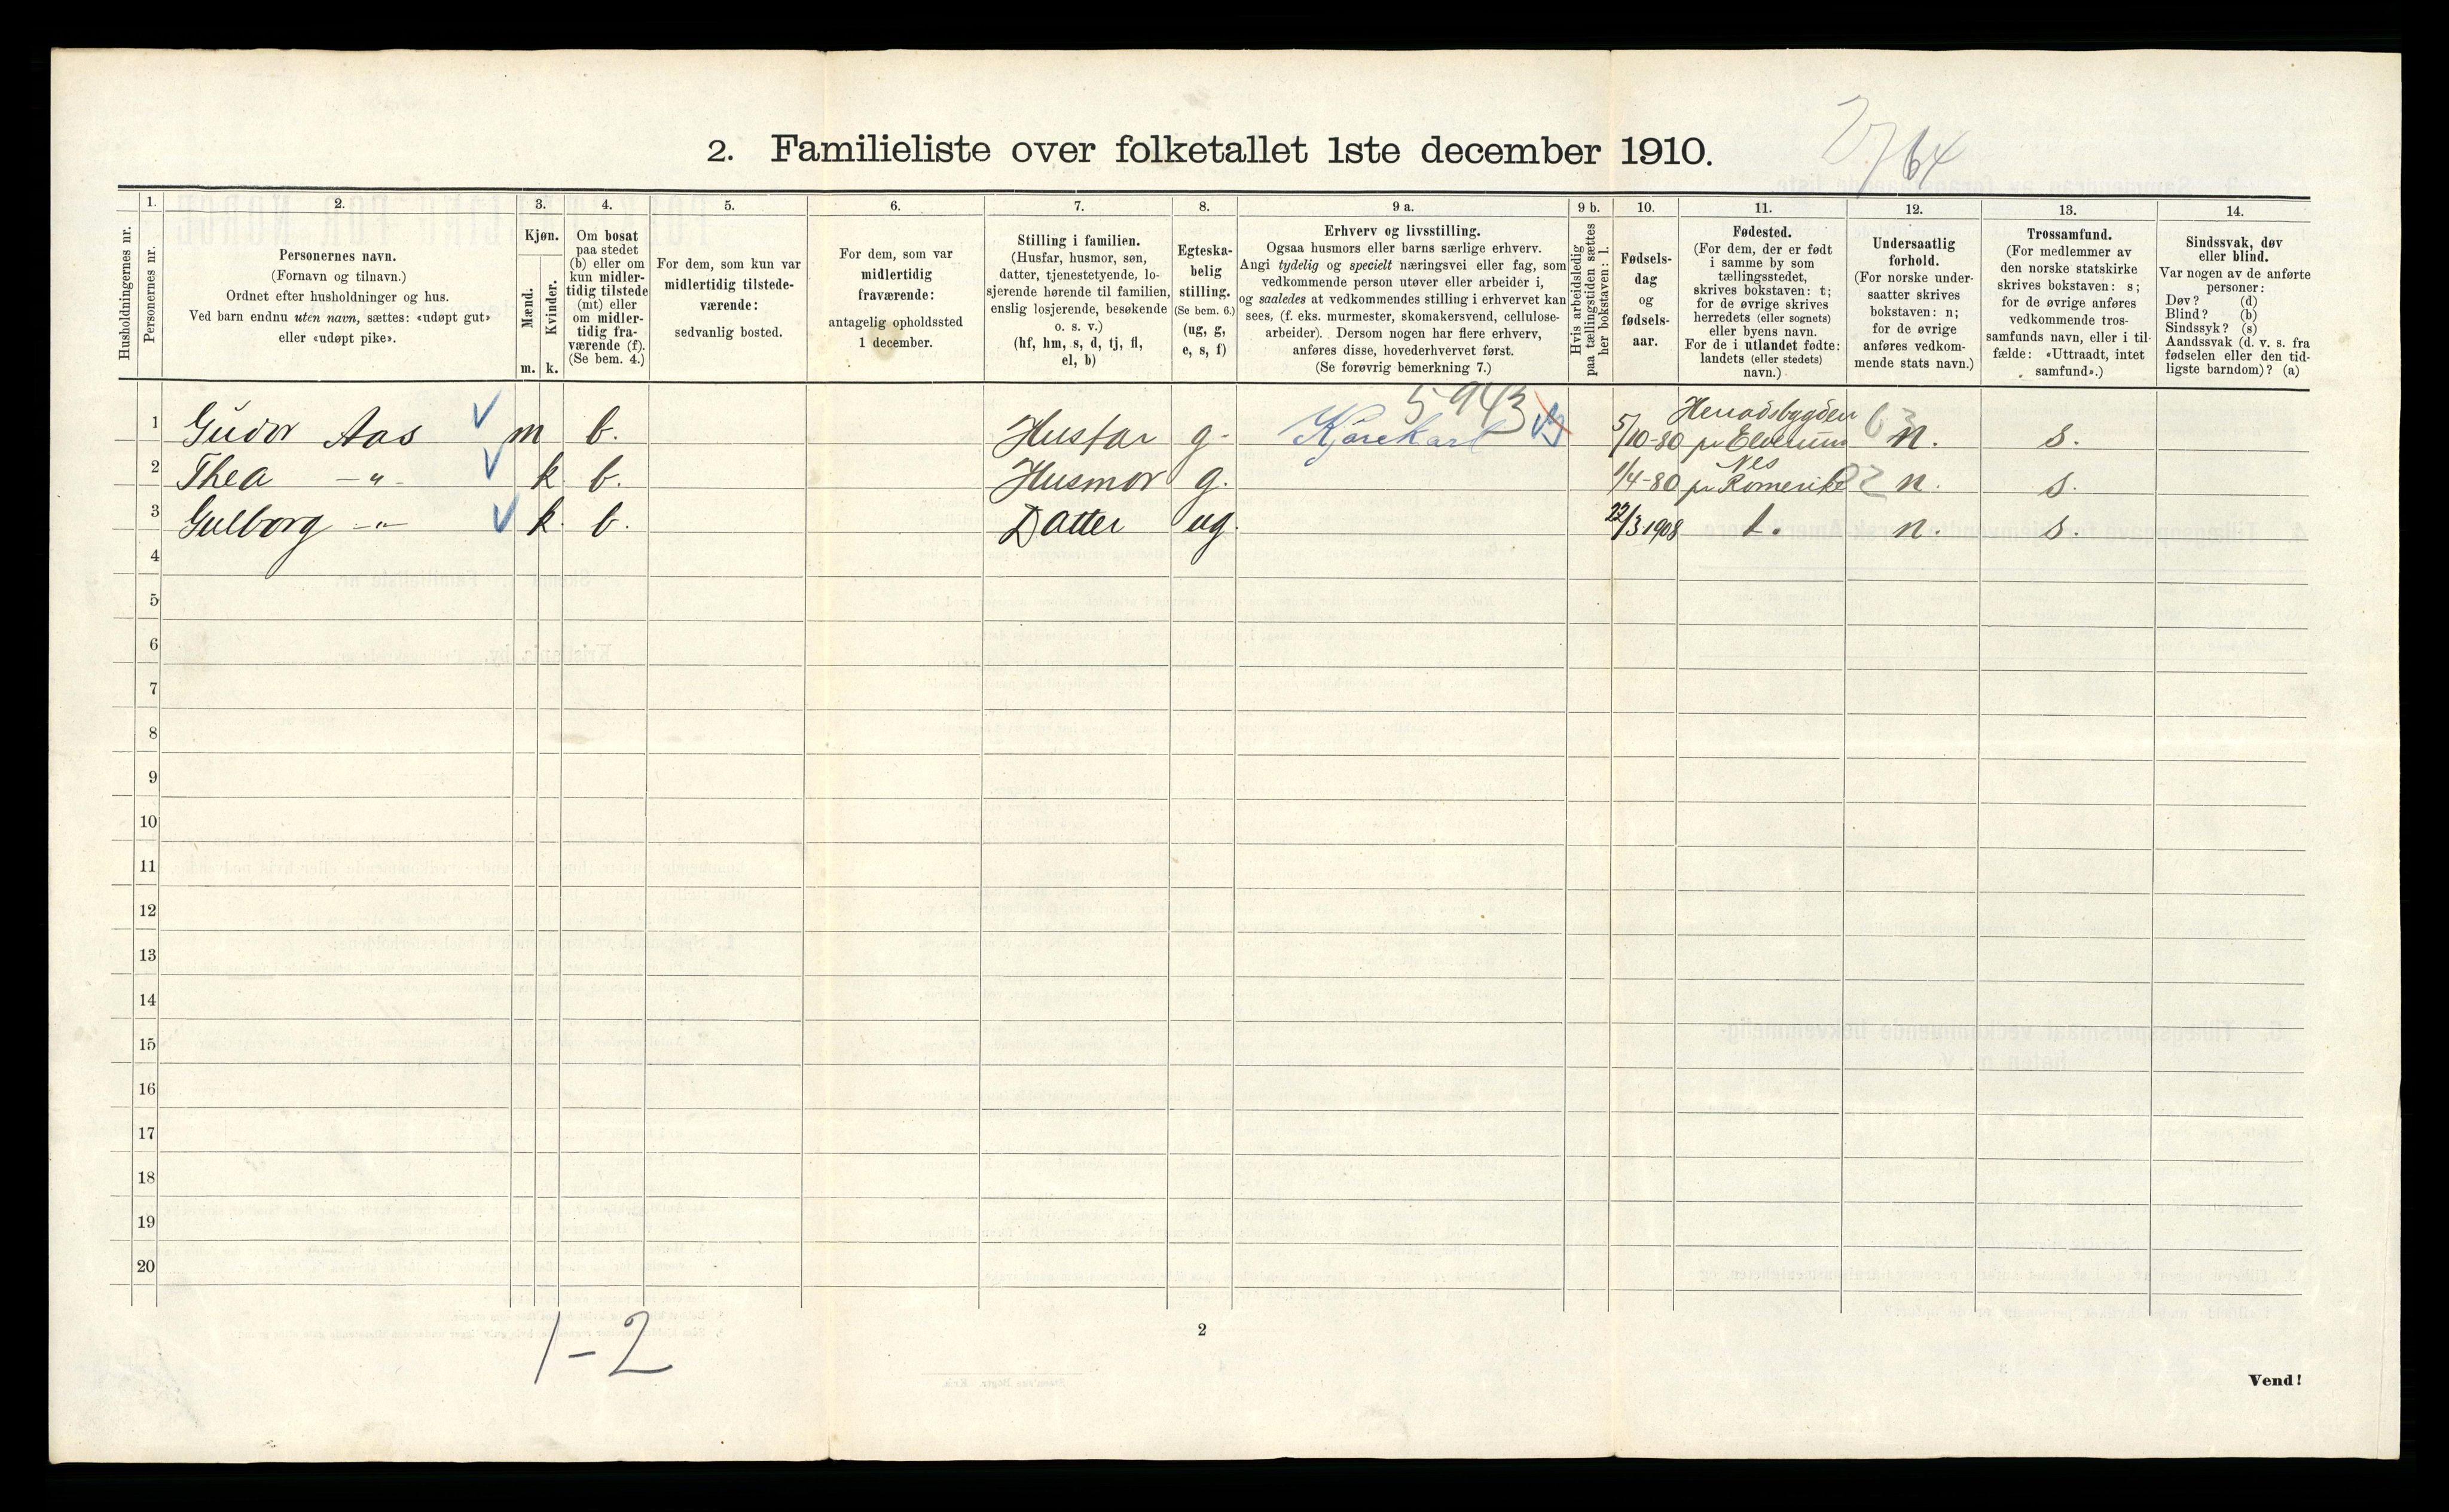 2764
2. Familieliste over folketallet 1ste december 1910.
Husholdningernes nr.
1.
Personernes nr.
2.
Personernes navn.
(Fornavn og tilnavn.)
Ordnet efter husholdninger og hus.
Ved barn endnu uten navn, sættes: «udøpt gut»
eller «udøpt pike».
3.
Kjøn.
Mænd.
Kvinder.
m. k.
4.
Om bosat
paa stedet
(b) eller om
kun midler-
tidig tilstede
(mt) eller
om midler-
tidig fra-
værende (f).
(Se bem. 4.)
5.
For dem, som kun var
midlertidig tilstede-
værende:
sedvanlig bosted.
6.
For dem, som var
midlertidig
fraværende:
antagelig opholdssted
1 december.
7.
Stilling i familien.
(Husfar, husmor, søn,
datter, tjenestetyende, lo-
sjerende hørende til familien,
enslig losjerende, besøkende
o. s. v.)
(hf, hm, s, d, tj, fl,
el, b)
8.
Egteska-
belig
stilling.
(Se bem. 6.)
(ug, g,
e, s, f)
9 a.
Erhverv og livsstilling.
Ogsaa husmors eller barns særlige erhverv.
Angi tydelig og specielt næringsvei eller fag, som
vedkommende person utøver eller arbeider i,
og saaledes at vedkommendes stilling i erhvervet kan
sees, (f. eks. murmester, skomakersvend, cellulose-
arbeider). Dersom nogen har flere erhverv,
anføres disse, hovederhvervet først.
(Se forøvrig bemerkning 7.)
9 b.
Hvis arbeidsledig
paa tællingstiden sættes
her bokstaven: l.
10.
Fødsels-
dag
og
fødsels-
aar.
11.
Fødested.
(For dem, der er født
i samme by som
tællingsstedet,
skrives bokstaven: t;
for de øvrige skrives
herredets (eller sognets)
eller byens navn.
For de i utlandet fødte:
landets (eller stedets)
navn.)
12.
Undersaatlig
forhold.
(For norske under-
saatter skrives
bokstaven: n;
for de øvrige
anføres vedkom-
mende stats navn.)
13.
Trossamfund.
(For medlemmer av
den norske statskirke
skrives bokstaven: s;
for de øvrige anføres
vedkommende tros-
samfunds navn, eller i til-
fælde: «Uttraadt, intet
samfund».)
14.
Sindssvak, døv
eller blind.
Var nogen av de anførte
personer:
Døv? (d)
Blind? (b)
Sindssyk? (s)
Aandssvak (d. v. s. fra
fødselen eller den tid-
ligste barndom)? (a)
5943
1 Gudor Aas m b. Husfar g. Kjørekarl 5/10-80 Herradsbygden pr Elverum 63 n. s.
2 Thea -"- k b. Husmor g. 1/4-80 Nes pr Romerike 22 n. s.
3 Gulborg -"- k. b. Datter ug. 22/3 1908 t. n. s.
4
5
6
7
8
9
10
11
12
13
14
15
16
17
18
19
20
1-2
2
Vend!